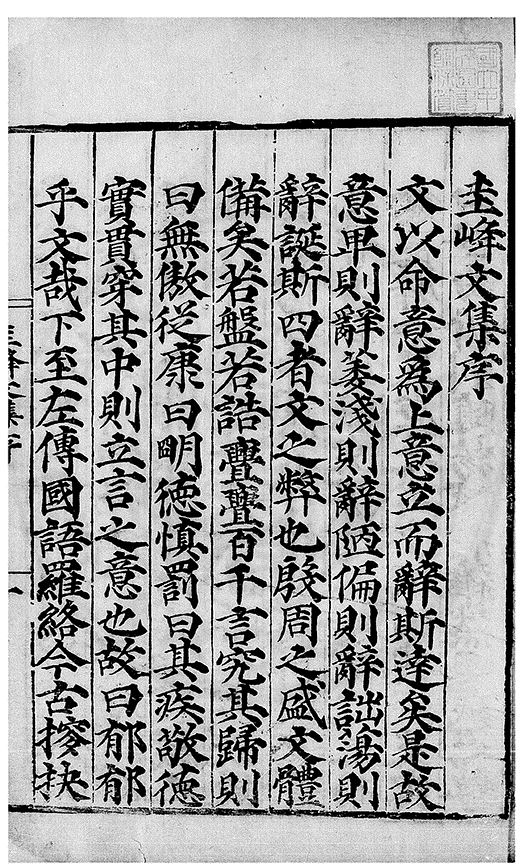 圭峰文集序
文以命意爲上意立而辭斯達矣是故
意卑則辭萎淺則辭陋偏則辭詘蕩則
辭誕斯四者文之弊也殷周之盛文體
備矣若盤若誥亹亹百千言究其歸則
曰無傲從康曰明德慎罰曰其疾敬德
實貫穿其中則立言之意也故曰郁郁
乎文哉下至左傳國語羅絡今古摉抉